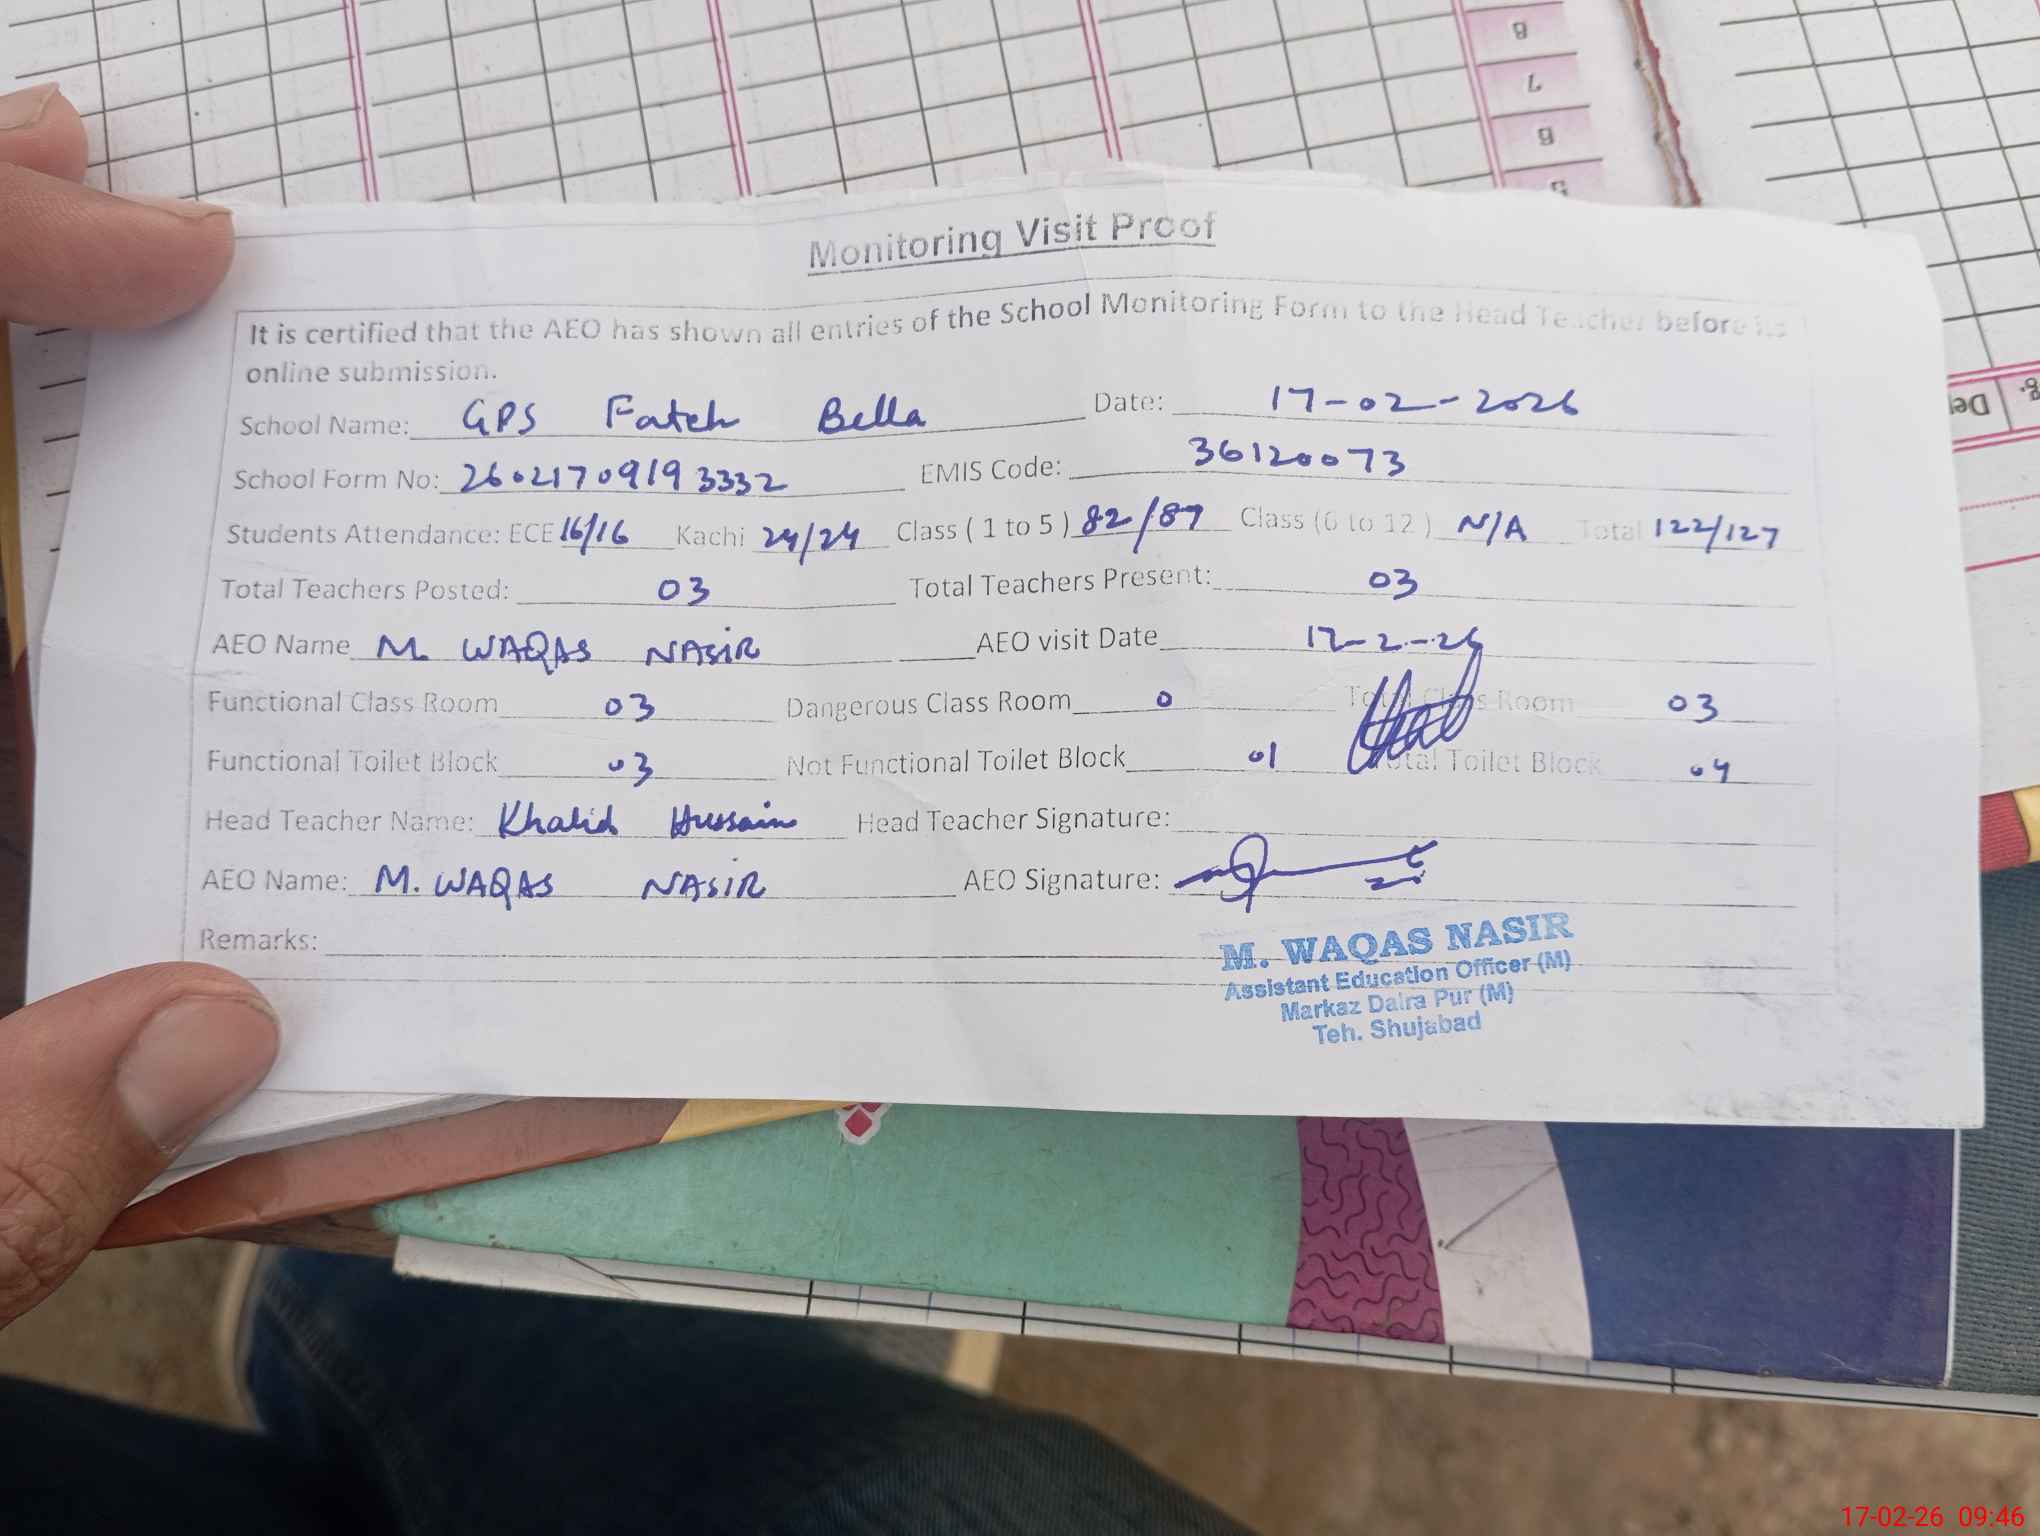 8
7
6
5
Monitoring Visit Proof
It is certified that the AEO has shown all entries of the School Monitoring Form to the Head Teacher before its
online submission.
School Name: GPS Fateh Bella Date: 17-02-2026
School Form No: 26021709193332 EMIS Code: 36120073
Students Attendance: ECE 16/16 Kachi 24/24 Class ( 1 to 5 ) 82/87 Class (6 to 12 ) N/A Total 122/127
Total Teachers Posted: 03 Total Teachers Present: 03
AEO Name M. WAQAS NASIR AEO visit Date 17-2-26
Functional Class Room 03 Dangerous Class Room 0 Total Class Room 03
Functional Toilet Block 03 Not Functional Toilet Block 01 Total Toilet Block 04
Head Teacher Name: Khalid Hussain Head Teacher Signature:
AEO Name: M. WAQAS NASIR AEO Signature:
Remarks:
M. WAQAS NASIR
Assistant Education Officer (M)
Markaz Daira Pur (M)
Teh. Shujabad
17-02-26 09:46